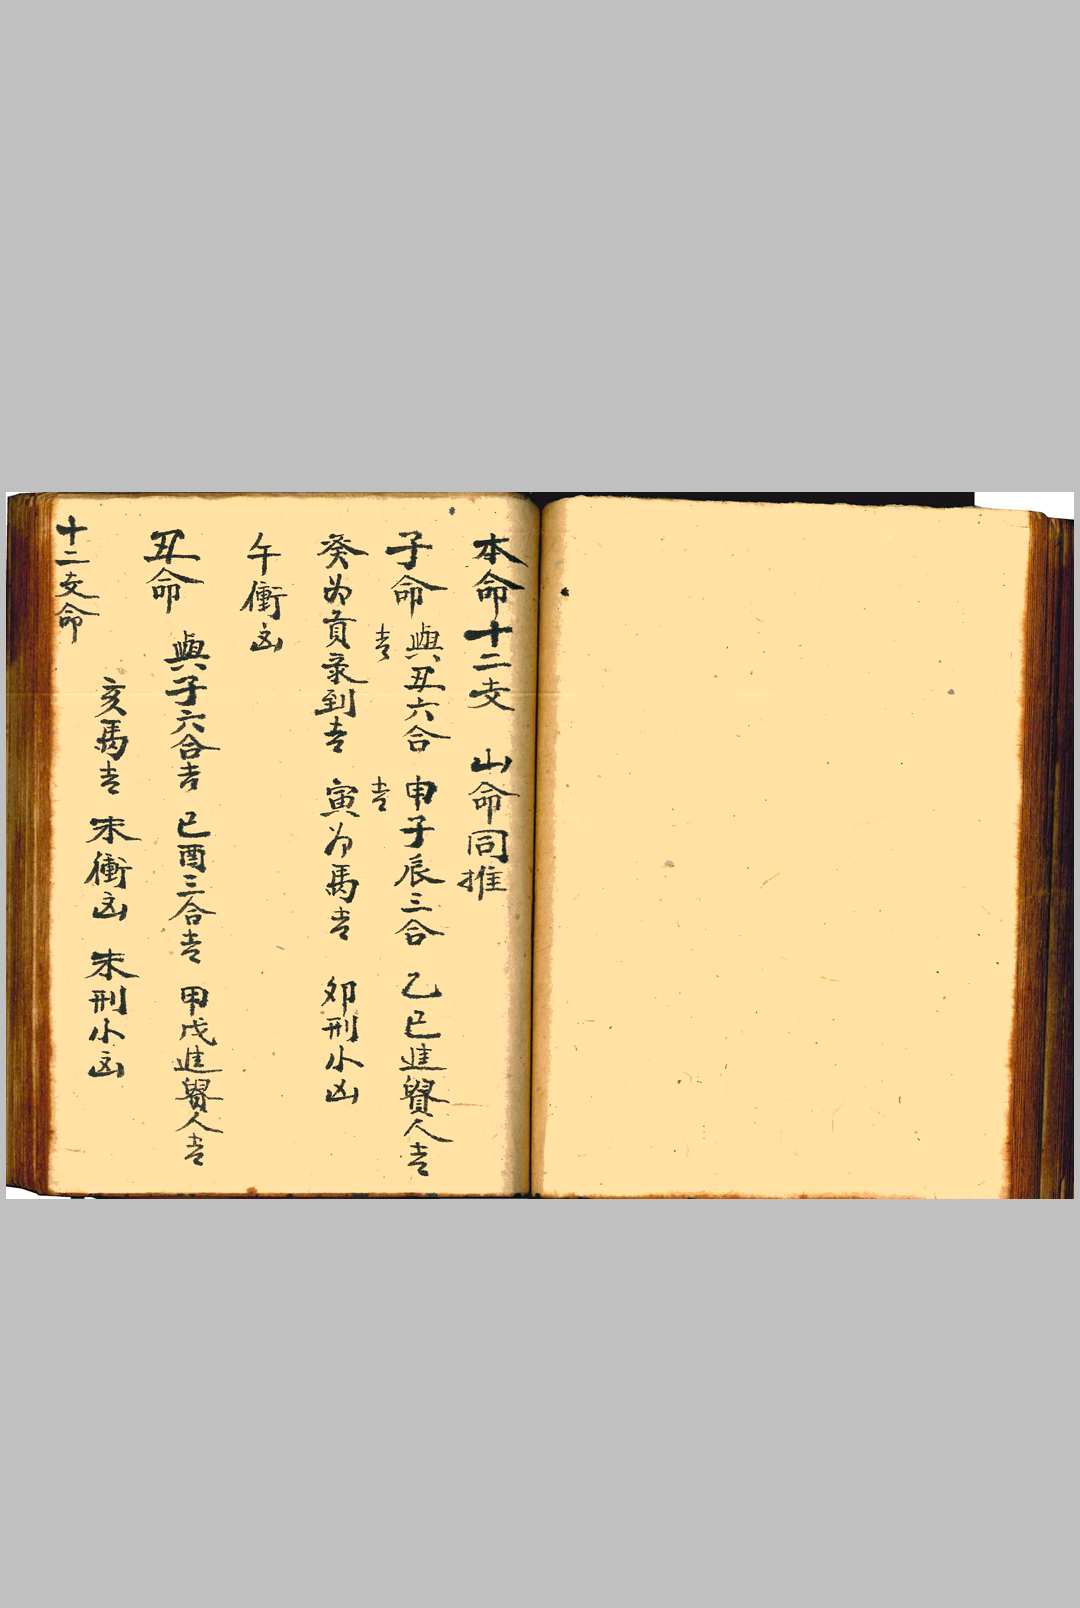 本命十二支 山命同推
子命 與丑六合吉 申子辰三合吉 乙巳進貴人吉
癸为貢彔到吉 寅为馬吉 卯刑小凶
午衝凶
丑命 與子六合吉 巳酉三合吉 甲戊進貴人吉
亥馬吉 未衝凶 未刑小凶
十二支命